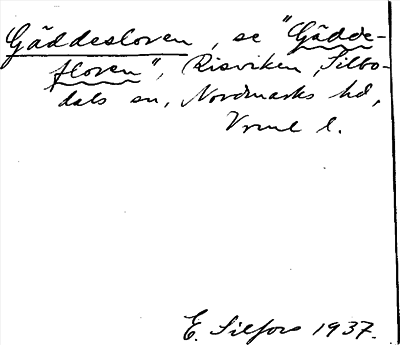 Gäddesloven, se "Gädde-
floven", Risviken, Silbo-
dals sn, Nordmarks hd,
Vrml l.
E. Silfors 1937.